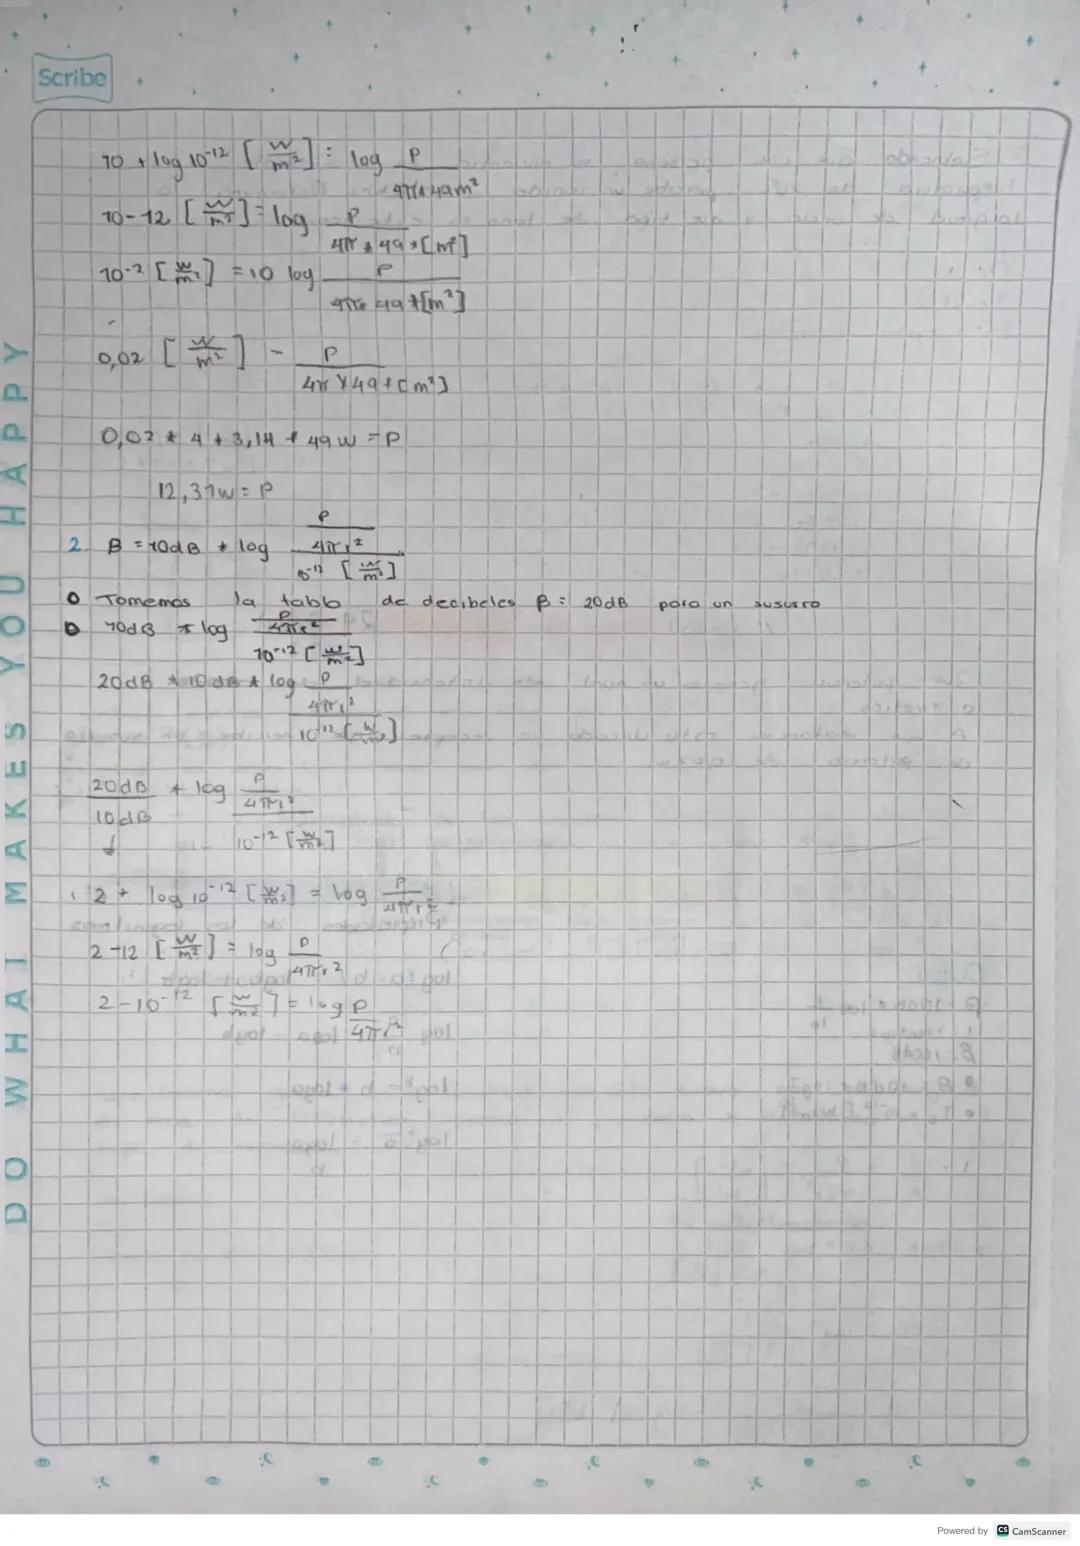 Scribe
10 + log 10⁻¹² [W/m²] = log P/(4π * 49m²)
10-12 [W/m²] = log P/(4π * 49 * [m²])
10⁻² [W/m²] = 10 log P/(4π * 49 * [m²])
0,02 [W/m²] - P/(4π * 49 * [m²])
0,02 * 4 * 3,14 * 49 W = P
12,31w = P
2. β = 10dB * log (P/4πr²)/(10⁻¹² [W/m²])
Tomemos la tabla de decibeles β = 20dB para un susurro
10dB * log (P/4πr²)/(10⁻¹² [W/m²])
20dB * 10dB * log (P/4πr²)/(10⁻¹² [W/m²])
20dB/10dB * log (P/4πr²)/(10⁻¹² [W/m²])
2 + log 10⁻¹² [W/m²] = log P/4πr²
2-12 [W/m²] = log P/4πr²
2-10⁻¹² [W/m²] = log P/4πr²
DO WHAT MAKES YOU HAPPY
Powered by CS CamScanner